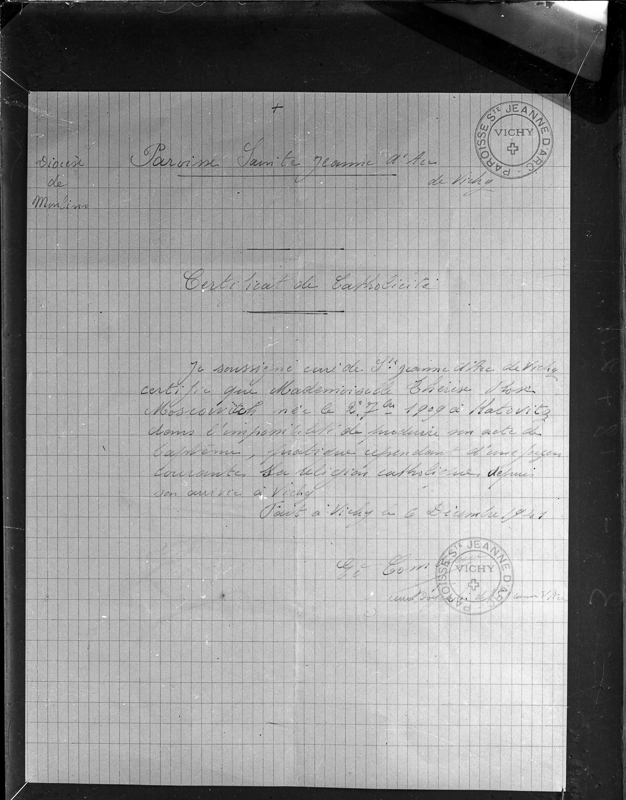 +
Diocèse
de
Moulins
Paroisse Sainte Jeanne d'Arc
de Vichy
PAROISSE STE JEANNE D'ARC
VICHY
Certificat de Catholicité
Je soussigné curé de Ste Jeanne d'Arc de Vichy
certifie que Mademoiselle Thérèse
Moscovitch née le 2 7bre 1909 à Katovitz
dans l'impossibilité de produire son acte de
baptême, pratique cependant d'une façon
courante sa religion catholique depuis
son arrivée à Vichy
Fait à Vichy ce 6 Décembre 1941
PAROISSE STE JEANNE D'ARC
VICHY